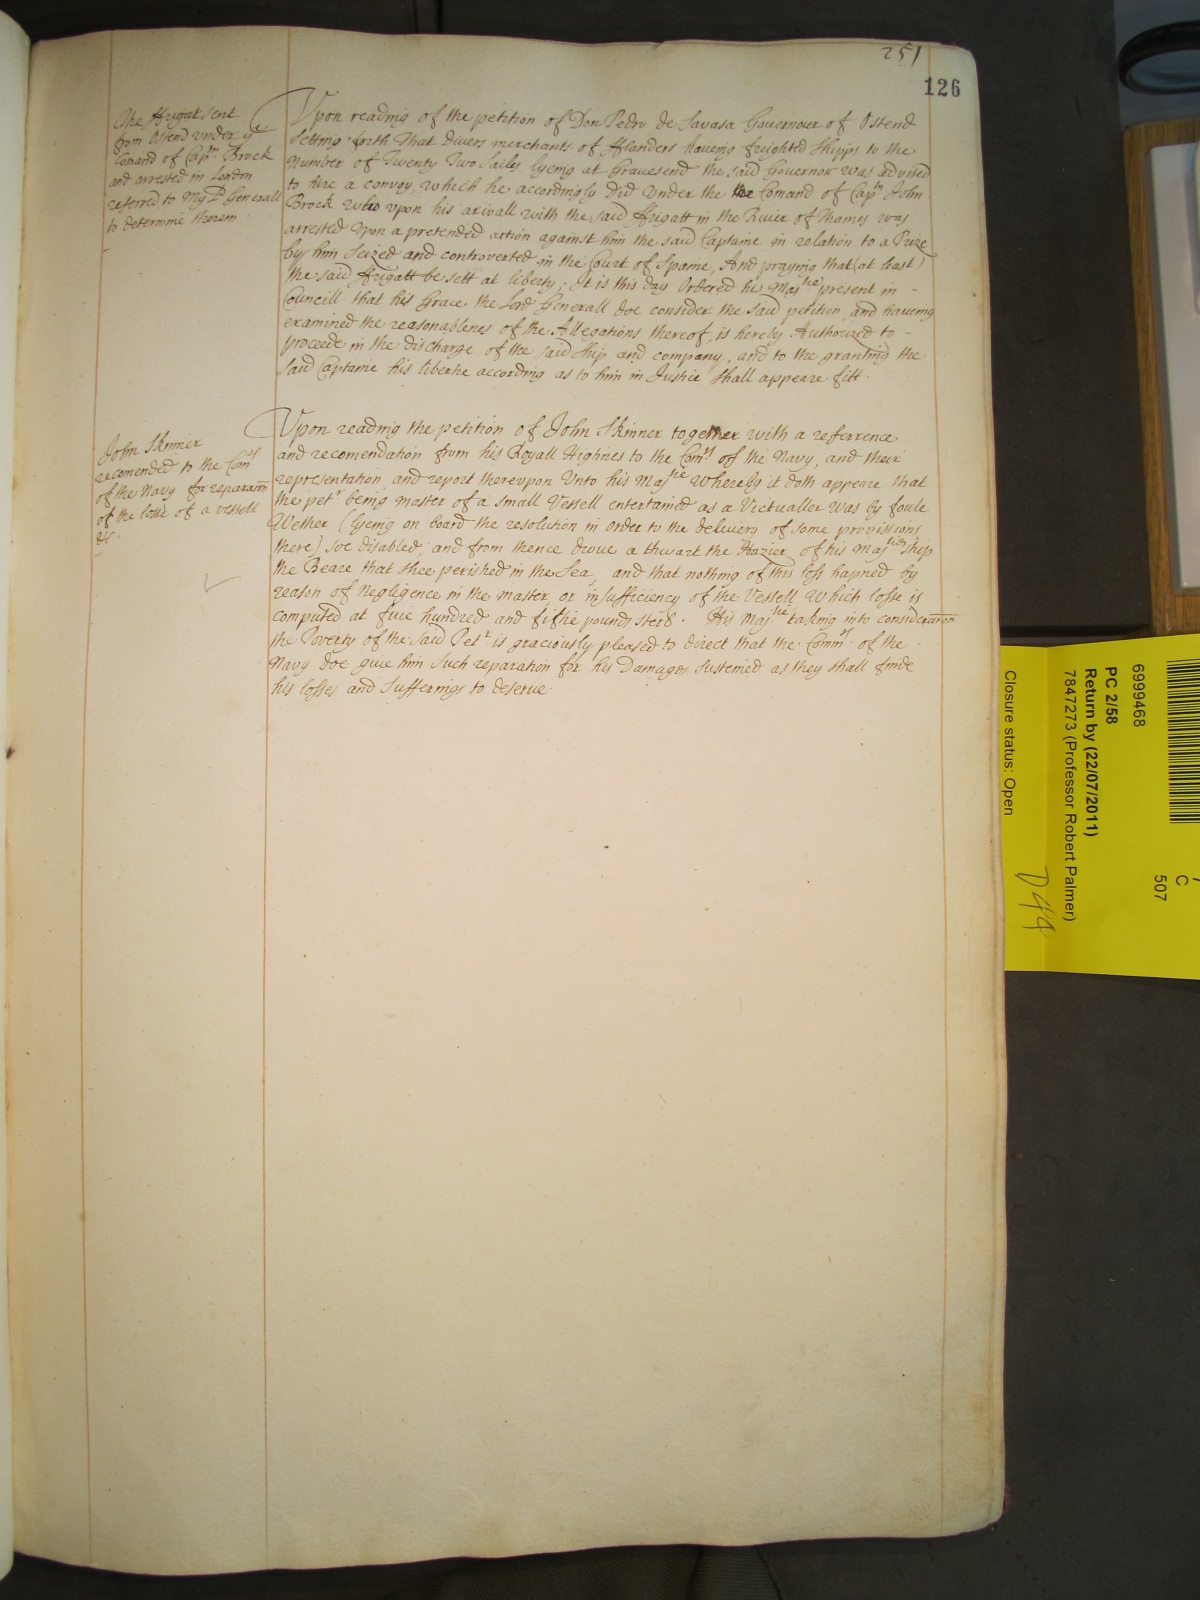 251
126
The ffrigat sent
from Ostend under ye
Comand of Captn Brock
and arrested in London
referred to My Ld Generall
to determine therein
Upon reading of the petition of Don Pedro de Savasa Governour of Ostend
Setting forth That divers merchants of Fflanders haveing freighted Shipps to the
number of Twenty Two Sailes lyeing at Gravesend the said Governor was advised
to hire a convoy, which he accordingly did under the the Comand of Captn John
Brock who upon his arivall with the said ffrigatt in the River of Thames was
arrested upon a pretended action against him the said Captaine in relation to a Prize
by him Seized and controverted in the Court of Spaine, And praying that (at least)
the said ffrigatt be sett at liberty; It is this day Ordered his Matie present in -
Councill that his Grace the Lord Generall doe consider the said petition, and haveing
examined the reasonablenes of the Allegations thereof, is hereby Authorized to -
proceede in the discharge of the said Ship and company, and to the granting the
said Captaine his libertie according as to him in Justice shall appeare fitt.
John Skinner
recomended to the Comrs
of the Navy for reparacon
of the losse of a vessell
&c.
Upon reading the petition of John Skinner together with a referrence
and recomendation from his Royall Highnes to the Comrs of the Navy, and their
representation, and report thereupon Unto his Majtie Whereby it doth appeare that
the petr being master of a small Vessell entertained as a Victualler was by foule
Wether (lyeing on board the resolution in order to the delivery of some provisions
there) soe disabled, and from thence drove a thwart the Hazier of his Majties ship
the Beare that shee perished in the Sea, and that nothing of this loss hapned by
reason of Negligence in the master, or insufficiency of the Vessell, Which losse is
computed at five hundred and fiftie pounds sterl. His Majtie taking into consideracon
the Poverty of the said Petr is graciously pleased to direct that the Commrs of the
Navy doe give him such reparation for his Damages sustened as they shall finde
his losses and sufferings to deserve.
6999468
PC 2/58
Return by (22/07/2011)
7847273 (Professor Robert Palmer)
Closure status: Open
C
507
D44